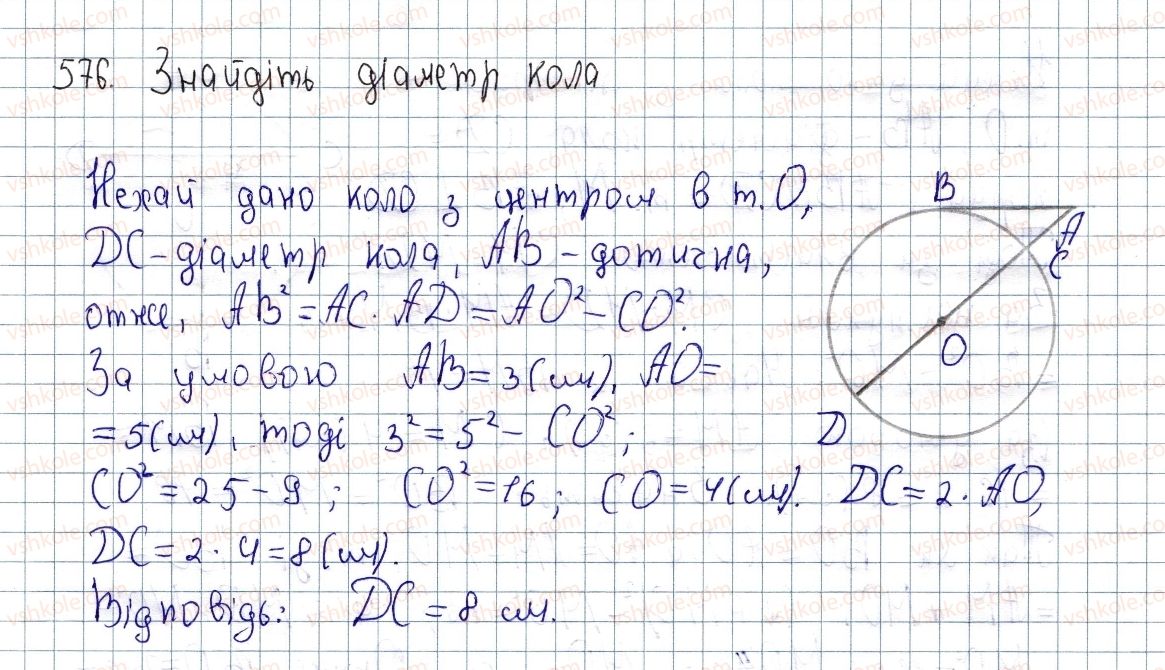 576. Знайдіть діаметр кола
Нехай дано коло з центром в т. О,
DC - діаметр кола, AB - дотична,
отже, AB² = AC · AD = AO² - CO².
За умовою AB = 3 (см), AO =
= 5 (см), тоді 3² = 5² - CO²;
CO² = 25 - 9; CO² = 16; CO = 4 (см). DC = 2 · AO,
DC = 2 · 4 = 8 (см).
Відповідь: DC = 8 см.
B
A
C
O
D
vshkole.com